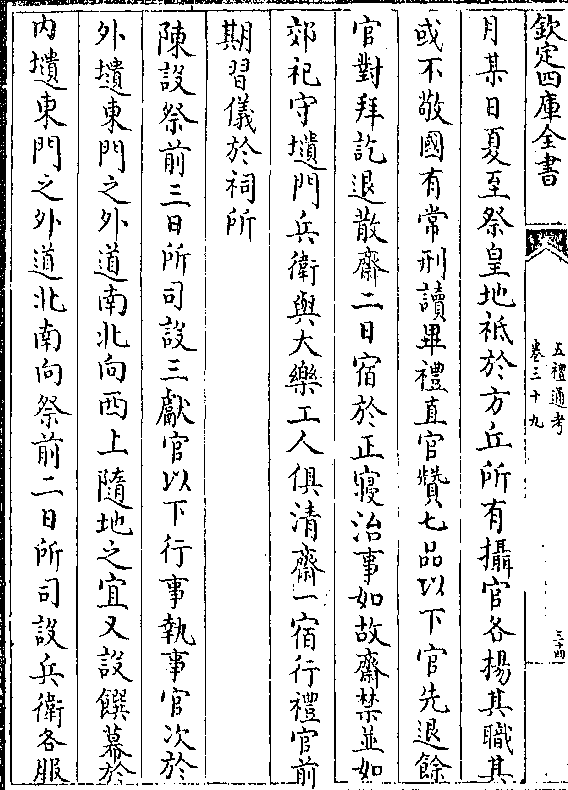 欽定四庫全書
五禮通考
卷三十九
三十四
月某日夏至祭皇地祗於方丘所有攝官各揚其職其
或不敬國有常刑讀畢禮直官贊七品以下官先退餘
官對拜訖退散齋二日宿於正寢治事如故齋禁並如
郊祀守壝門兵衛與大樂工人俱清齋一宿行禮官前
期習儀於祠所
陳設祭前三日所司設三獻官以下行事執事官次於
外壝東門之外道南北向西上隨地之宜又設饌幕於
内壝東門之外道北南向祭前二日所司設兵衛各服